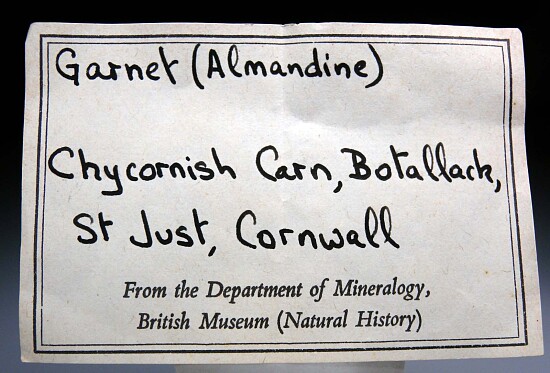 Garnet (Almandine)
Chycornish Carn, Botallack,
St Just, Cornwall
From the Department of Mineralogy,
British Museum (Natural History)